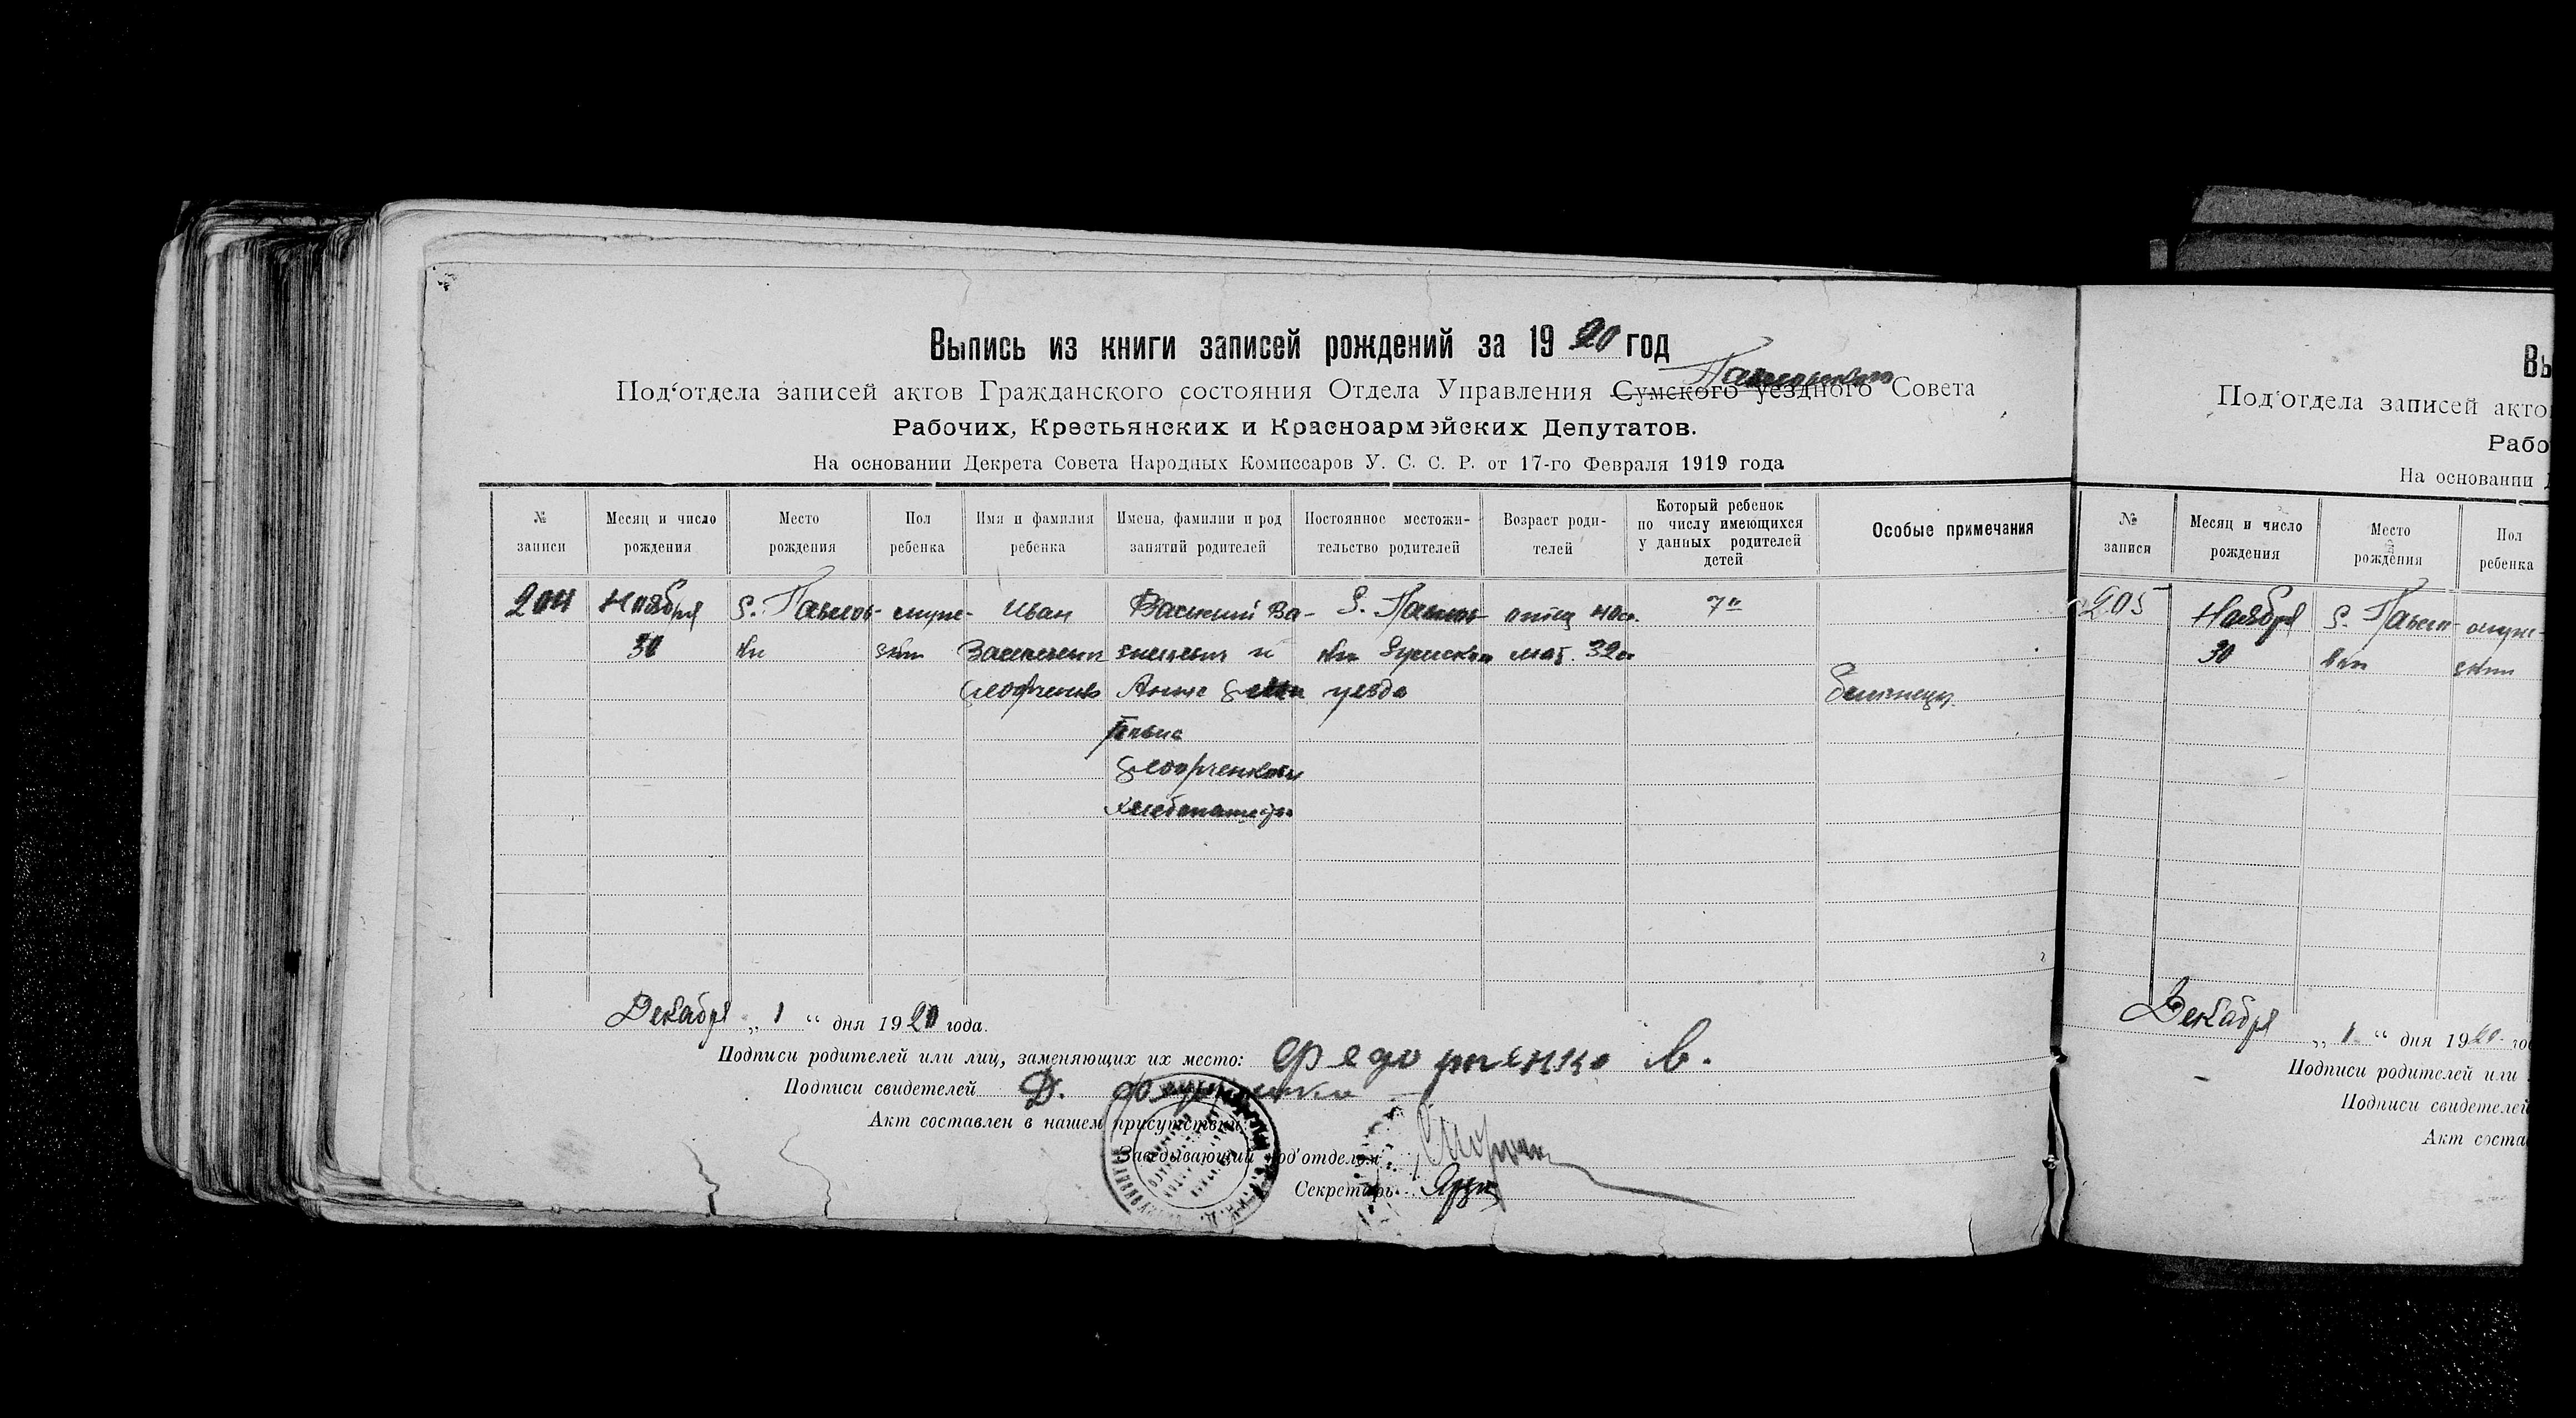 Выпись из книги записей рождений за 1920 год
Под‘отдела записей актов Гражданского состояния Отдела Управления Сумского уездного Совета
Рабочих, Крестьянских и Красноармейских Депутатов.
На основании Декрета Совета Народных Комиссаров У. С. С. Р. от 17-го Февраля 1919 года
№ записи
Месяц и число рождения
Место рождения
Пол ребенка
Имя и фамилия ребенка
Имена, фамилии и род занятий родителей
Постоянное местожительство родителей
Возраст родителей
Который ребенок по числу имеющихся у данных родителей детей
Особые примечания
204
Ноября
30
с. Павлов-
ки
муж-
ской
Иван
Васильевич
Васелий Ва-
сильевич и
Анна
С. Павлов-
ки Сумского
уезда
отец 40 л.
мат. 32 л.
7й
близнецы
Декабря „ 1 “ дня 1920 года.
Подписи родителей или лиц, заменяющих их место: Федорченко В.
Подписи свидетелей Д.
Акт составлен в нашем присутствии:
Заведывающий под‘отделом
Секретарь
Вы
Под‘отдела записей акто
Рабо
На основании Д
№ записи
Месяц и число рождения
Место рождения
Пол ребенка
205
Ноября
30
с. Павлов-
ки
муж-
ской
Декабря „ 1 “ дня 1920 го
Подписи родителей или
Подписи свидетелей
Акт соста